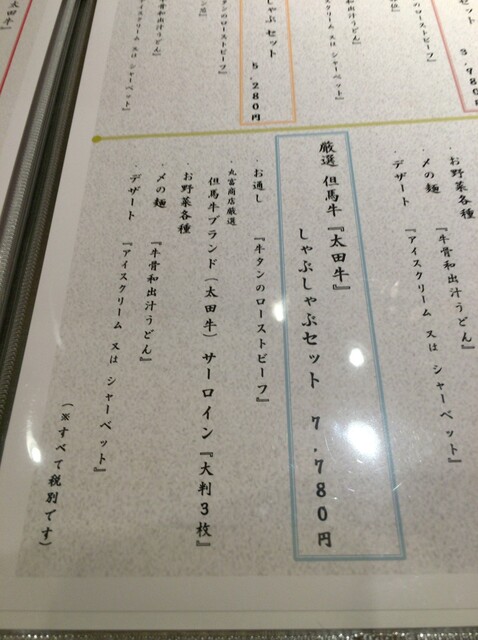 太田牛』
位
ンのローストビーフ』
3,780円
和出汁うどん』
アイスクリーム 又は シャーベット』
しゃぶ セット
5,280円
タンのローストビーフ』
和出汁うどん』
アイスクリーム 又は シャーベット』
お野菜各種
〆の麺 『牛骨和出汁うどん』
デザート 『アイスクリーム 又は シャーベット』
厳選 但馬牛『太田牛』
しゃぶしゃぶセット 7,780円
・お通し 『牛タンのローストビーフ』
・丸富商店厳選
但馬牛ブランド(太田牛) サーロイン『大判3枚』
・お野菜各種
・〆の麺 『牛骨和出汁うどん』
・デザート 『アイスクリーム 又は シャーベット』
(※すべて税別です)